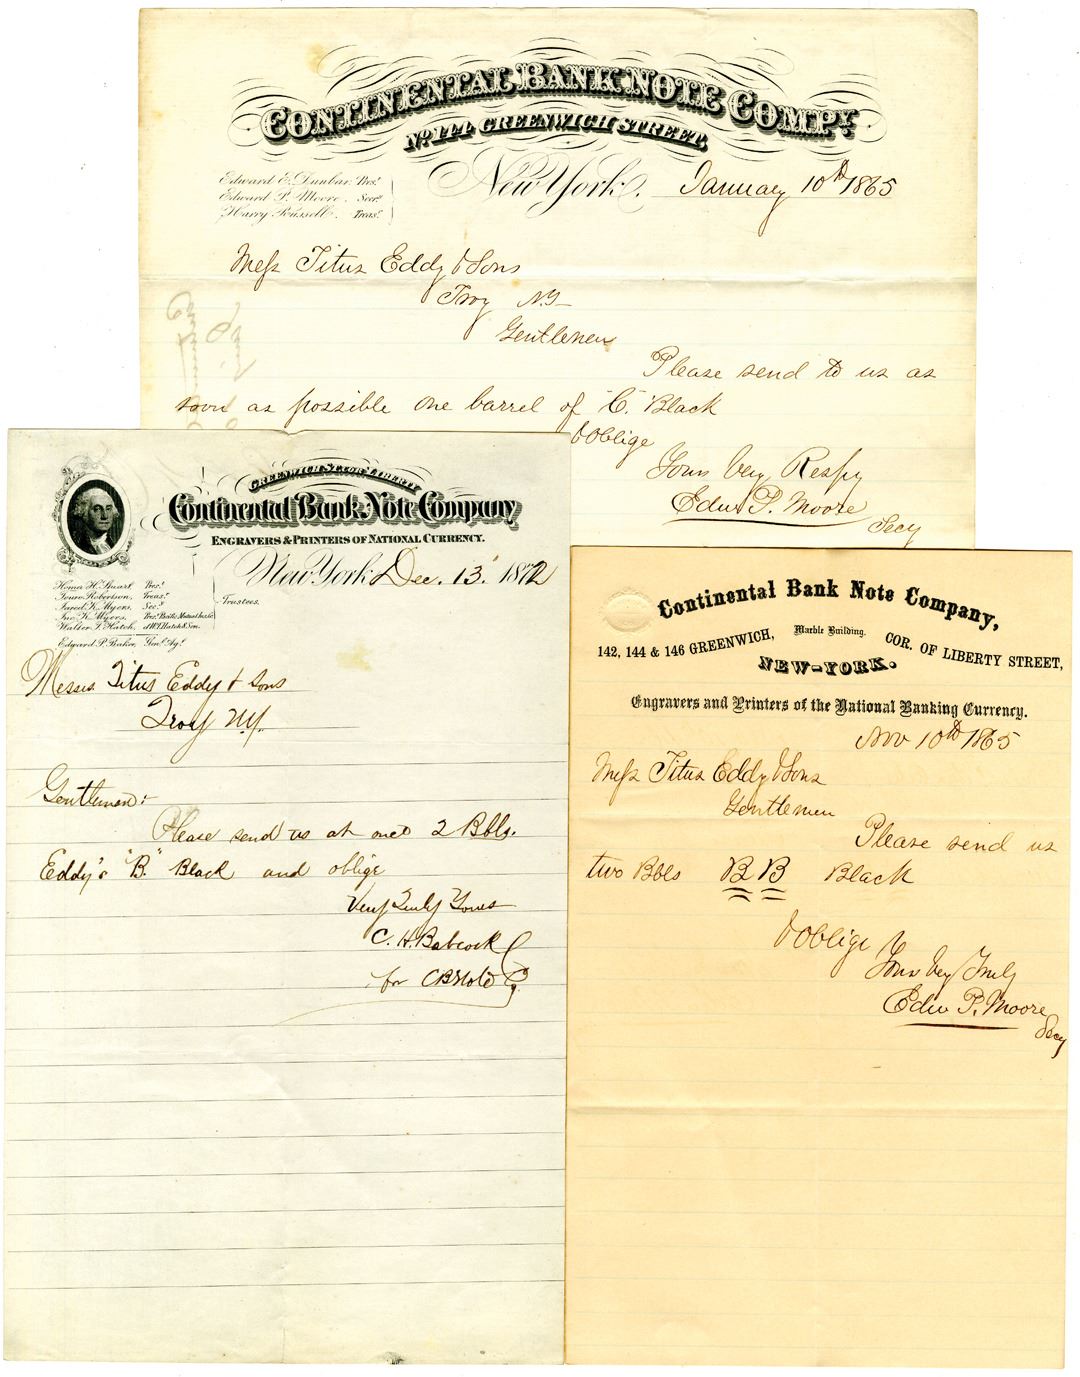 CONTINENTAL BANK NOTE COMPY.
No. 144 GREENWICH STREET.
Edward E. Dunbar. Prest.
Edward P. Moore. Secry.
Harry Russell. Treasr.
New York. January 10th 1865
Mess Titus Eddy & Sons
Troy N.Y
Gentlemen
Please send to us as
soon as possible one barrel of "C" Black
& Oblige
Yours Very Respy
Edw P. Moore
Secy
GREENWICH ST. COR. LIBERTY
Continental Bank Note Company
ENGRAVERS & PRINTERS OF NATIONAL CURRENCY.
New York Dec. 13 1872
Homer H. Stuart Prest.
Robertson, Treasr.
Jared K. Myers, Secy.
Jno. K. Myers, Prest. Pacific Mutual Ins. Co.
Walter T. Hatch, of W.T. Hatch & Son.
Trustees.
Edward P. Baker, Genl. Agt.
Messrs Titus Eddy & Sons
Troy N.Y.
Gentlemen:
Please send us at once 2 Bbls.
Eddy's "B." Black and oblige
Very Truly Yours
C. H. Babcock
for C B Note Co.
Continental Bank Note Company,
Marble Building.
142, 144 & 146 GREENWICH, COR. OF LIBERTY STREET,
NEW-YORK.
Engravers and Printers of the National Banking Currency.
Nov 10th 1865
Mess Titus Eddy & Sons
Gentlemen
Please send us
two Bbls BB Black
& Oblige
Yours Very Truly
Edw P. Moore
Secy